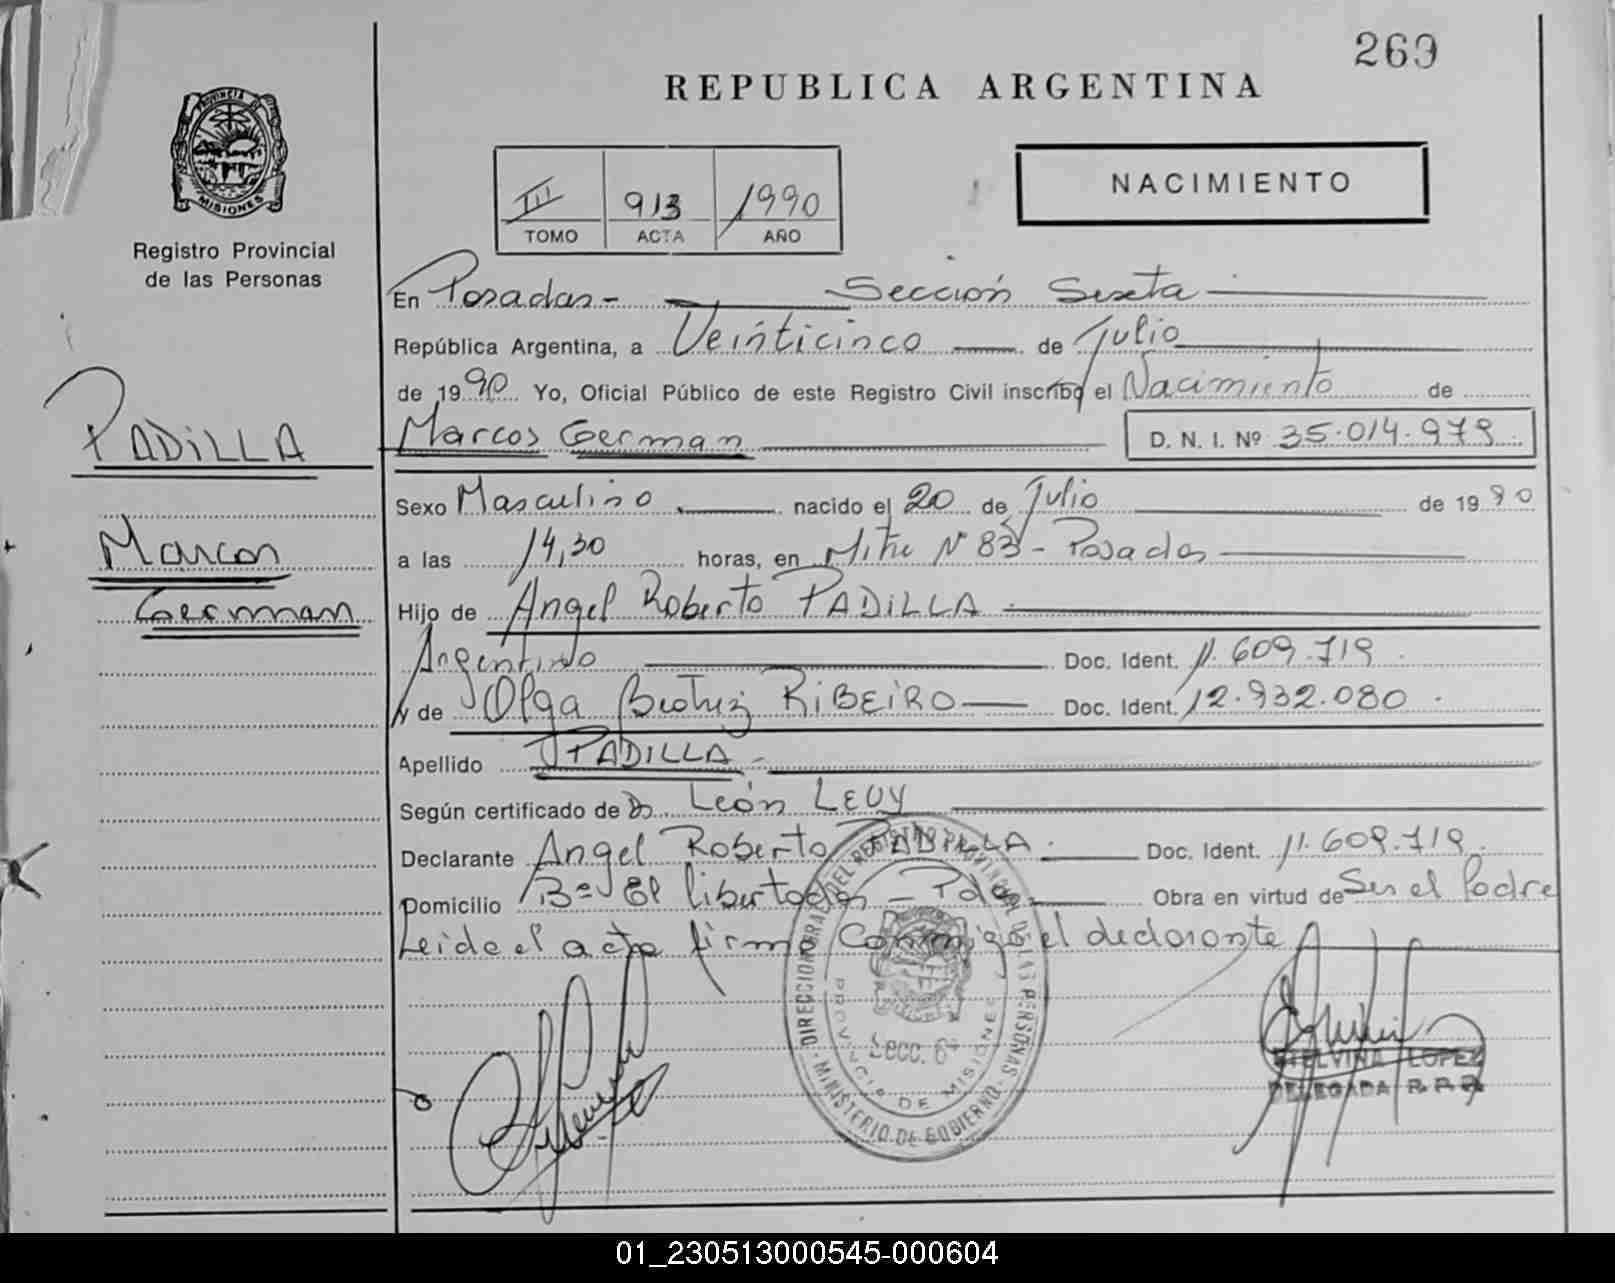 269
REPUBLICA ARGENTINA
PROVINCIA DE
MISIONES
Registro Provincial
de las Personas
III 913 1990
TOMO ACTA AÑO
NACIMIENTO
En Posadas - Sección Sexta
República Argentina, a Veinticinco de Julio
de 1990 Yo, Oficial Público de este Registro Civil inscribo el Nacimiento de
Marcos German D. N. I. Nº 35.014.979
PADiLLA
Marcos
German
Sexo Masculino nacido el 20 de Julio de 1990
a las 14,30 horas, en Mitre Nº 83 - Posadas
Hijo de Angel Roberto PADiLLA
Argentino Doc. Ident. 11.609.719
y de Olga Beatriz RiBEiRO Doc. Ident. 12.932.080
Apellido PADILLA
Según certificado de Dr. León LEVY
Declarante Angel Roberto PADILLA Doc. Ident. 11.609.719
Domicilio Bº El libertador - Pdas Obra en virtud de Ser el Padre
Leida el acta firma Conmigo el declarante
DIRECCION GRAL DEL REGISTRO PROVINCIAL DE LAS PERSONAS
MINISTERIO DE GOBIERNO
PROVINCIA DE MISIONES
Secc. 6ª
ETELVINA LOPEZ
DELEGADA R. P. P.
01_230513000545-000604